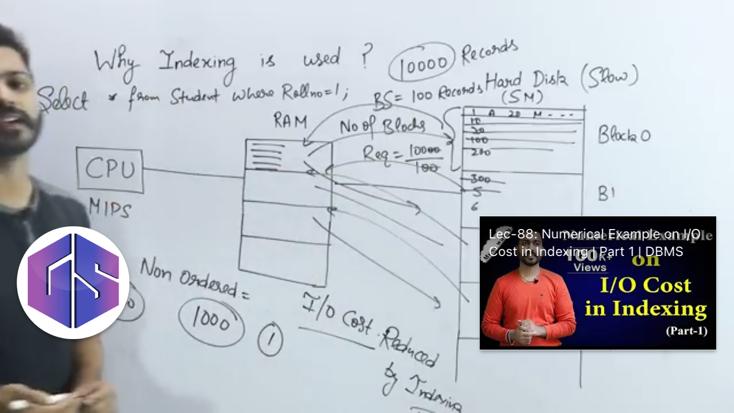 Why Indexing is used ? 10000 Records
Select * from Student where Rollno=1;
BS= 100 Records
Hard Disk (Slow)
(SM)
RAM
No of Blocks
Req = 10000
100
CPU
MIPS
1 A 20 M - - -
10
20
100
200
Block 0
300
5
6
B1
Non Ordered =
1000
1
I/O Cost Reduced
by Indexing
GS
Lec-88: Numerical Example on I/O
Cost in Indexing | Part 1 | DBMS
100K+
Views
on
I/O Cost
in Indexing
(Part-1)